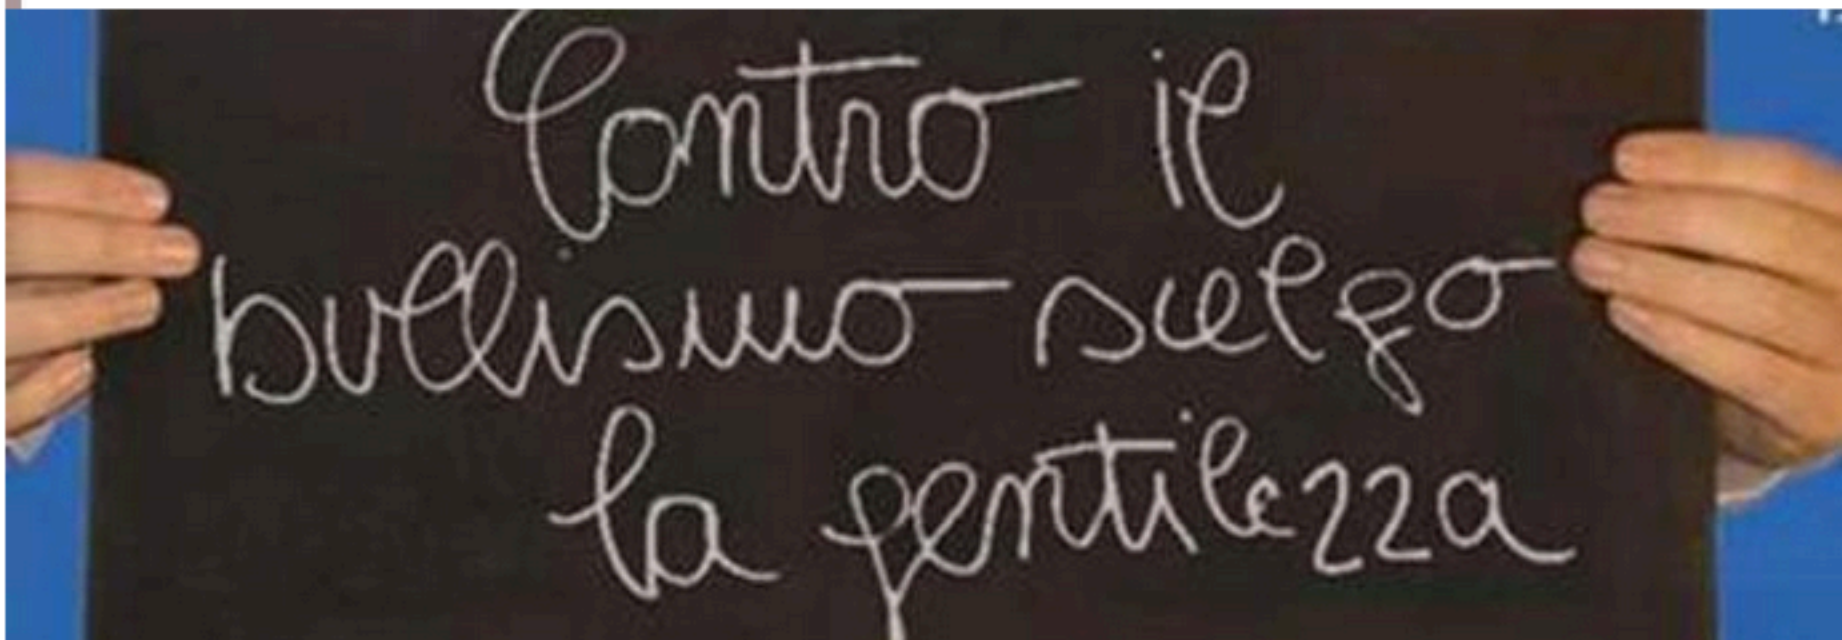 Contro il
bullismo scelgo
la gentilezza